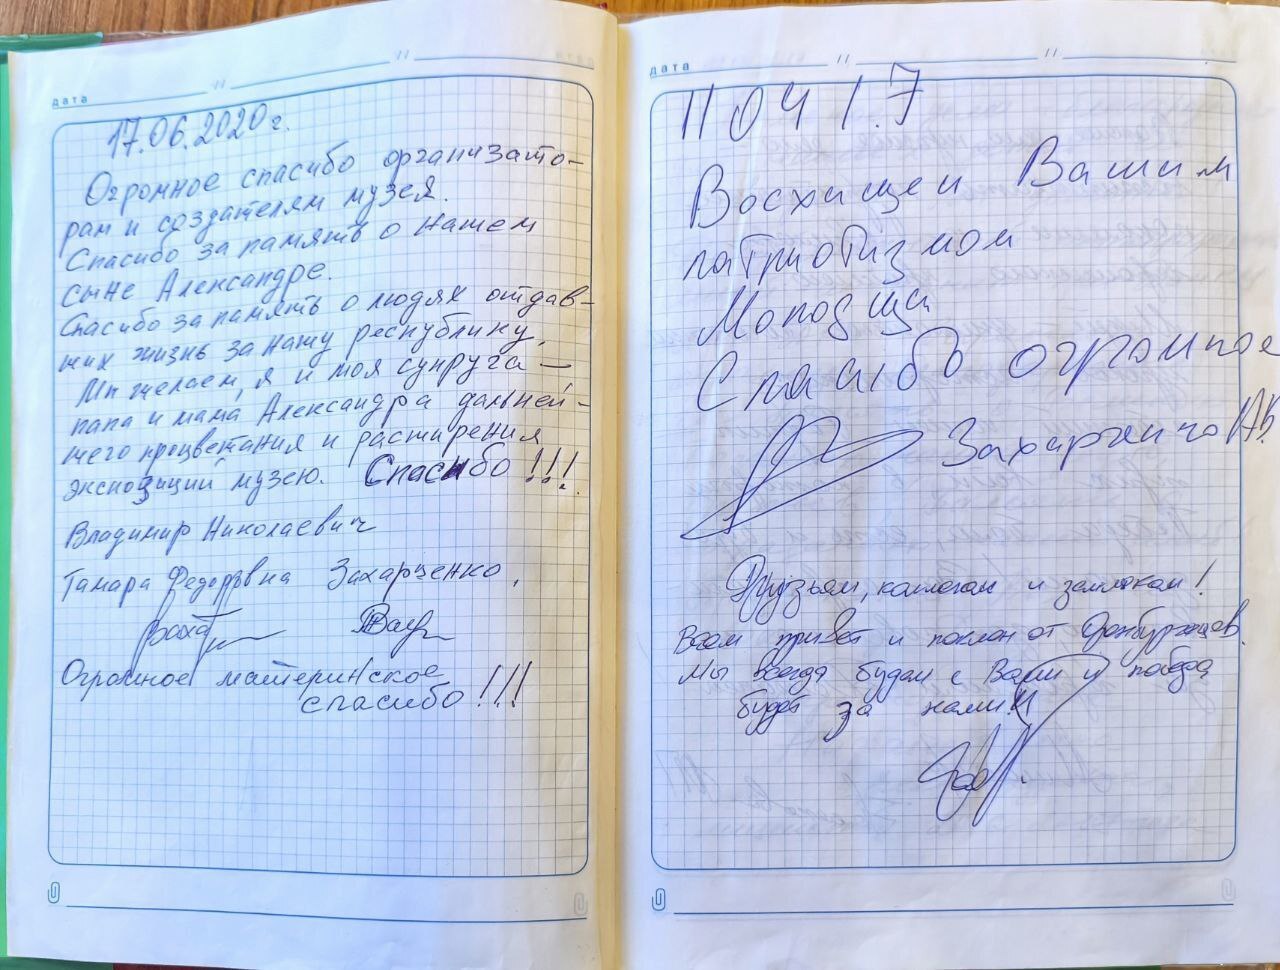 дата
17.06.2020г.
Огромное спасибо организато-
рам и создателям музея.
Спасибо за память о нашем
сыне Александре.
Спасибо за память о людях отдав-
ших жизнь за нашу республику.
Мы желаем, я и моя супруга –
папа и мама Александра дальней-
шего процветания и расширения
экспозиций музею. Спасибо!!!
Владимир Николаевич
Тамара Федоровна Захарценко,
Огромное материнское
спасибо!!!
дата
11 04 1.7
Восхищен Вашим
патриотизмом
Молодцы
Спасибо огромное
Друзьям, коллегам и землякам!
Всем привет и поклон от
Мы всегда будем с Вами и победа
будет за нами!!